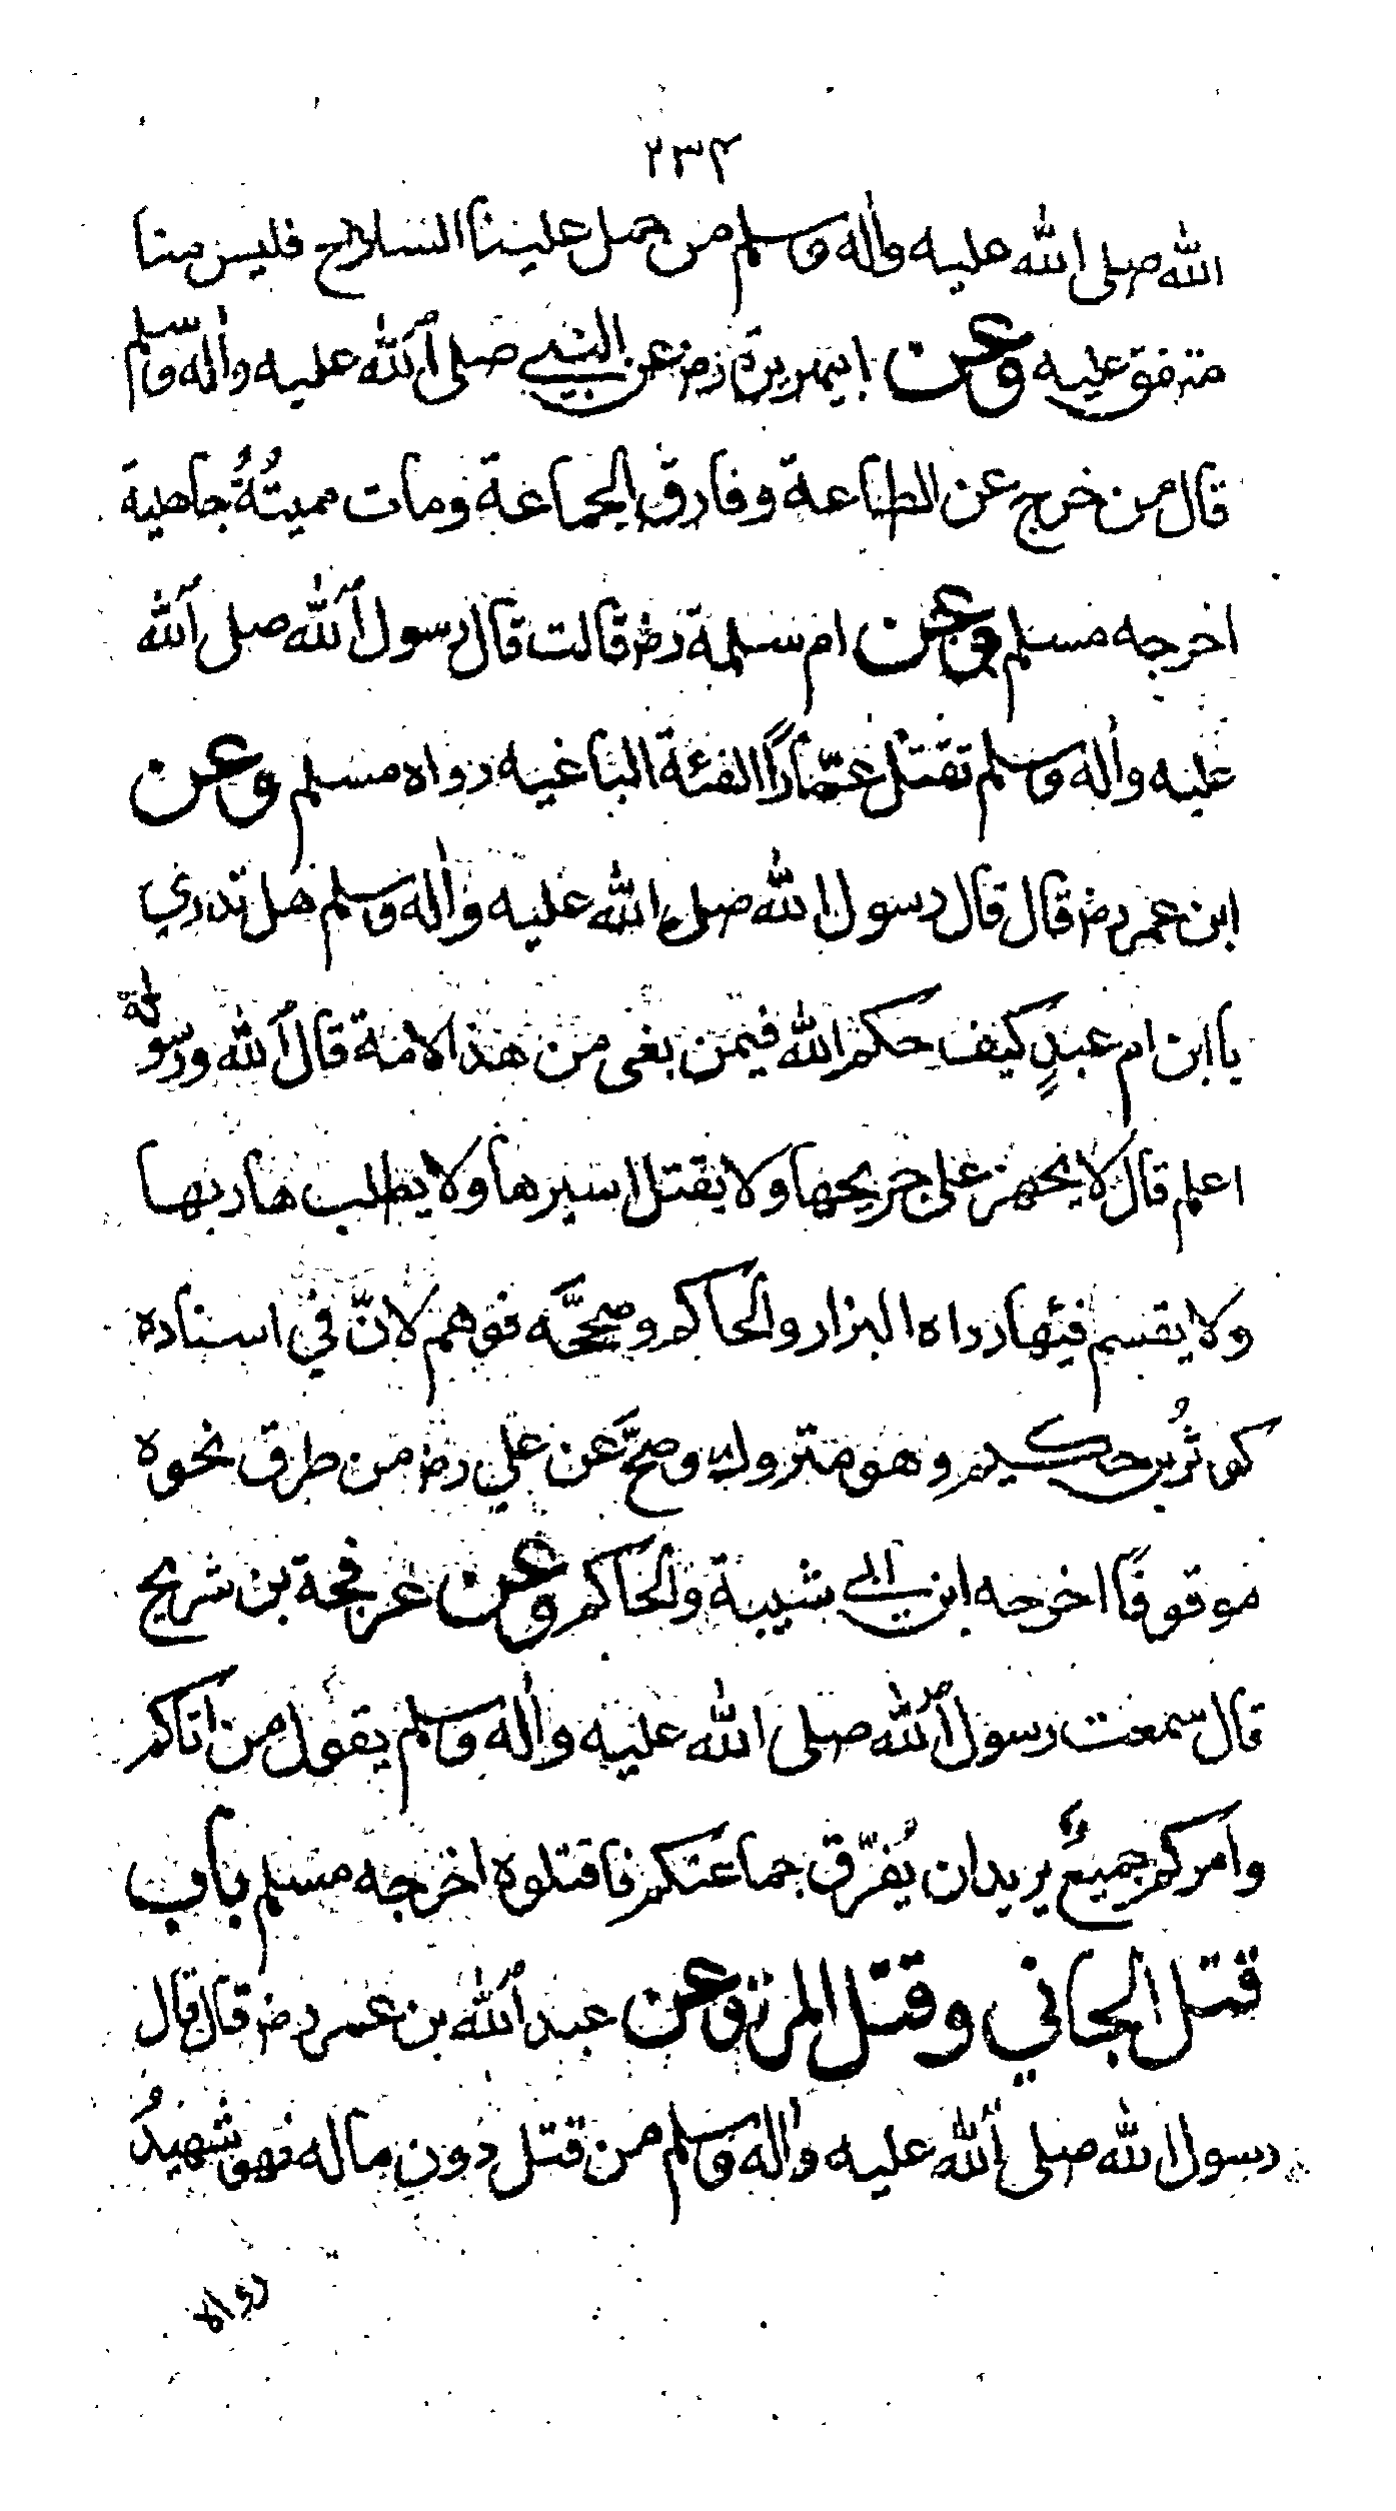 ٢٣٢
الله صلى الله عليه واله وسلم من حمل علينا السلاح فليس منا
متفق عليه وعن ابيهريرة رض عن النبي صلى الله عليه واله وسلم
قال من خرج عن الطاعة وفارق الجماعة ومات مميتُةُ جاهلية
اخرجه مسلم وعن ام سلمة رض قالت قال رسول الله صلى الله
عليه واله وسلم تقتل عمّاراً الفئة الباغيه رواه مسلم وعن
ابن عمر رض قال قال رسول الله صلى الله عليه واله وسلم هل تدري
يا ابن ام عبدٍ كيف حكم الله فيمن بغى من هذا الامة قال الله ورسوله
اعلم قال لا يجهز على جريحها ولا يقتل اسيرها ولا يطلب هاربها
ولا يقسم فيئها رواه البزار والحاكم وصححّه فوهم لانّ في اسناده
كوثرُ بن حكيم وهو متروك وصحّ عن علي رض من طرق نحوه
موقوفًا اخرجه ابن ابي شيبة والحاكم وعن عرفجة بن شريح
قال سمعت رسول الله صلى الله عليه واله وسلم يقول من اتاكم
وامركم جميعٌ يريد ان يُفرّق جماعتكم فاقتلوه اخرجه مسلم باب
قتل الجاني وقتل المرتد وعن عبد الله بن عمر رض قال قال
رسول الله صلى الله عليه واله وسلم من قتل دون ماله فهو شهيدٌ
رواه